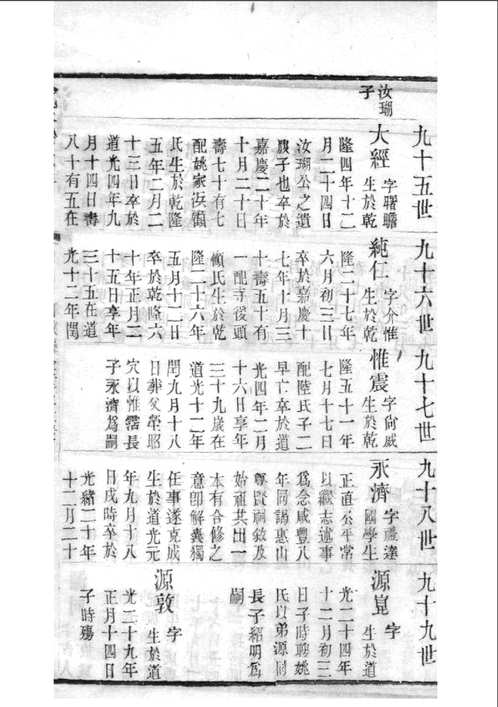 九十五世
汝瑚子
大經 字 聯
生於乾
隆四年十二
月二十四日
汝瑚公之遺
腹子也卒於
嘉慶二十年
十月二十日
壽七十有七
配姚家浜顧
氏生於乾隆
五年二月二
十三日卒於
道光四年九
月十四日壽
八十有五在
九十六世
純仁 字介惟
生於乾
隆二十七年
六月初三日
卒於嘉慶十
七年十月三
十壽五十有
一配寺後頭
顧氏生於乾
隆二十六年
五月十二日
卒於乾隆六
十年正月二
十五日享年
三十五在道
光十二年閏
九十七世
惟震 字尙威
生於乾
隆五十一年
七月十七日
配陸氏子二
早亡卒於道
光四年二月
十六日享年
三十九歲在
道光十二年
閏九月十八
日葬父塋昭
穴以惟霑長
子永濟爲嗣
九十八世
永濟 字禮達
國學生
正直公平常
以繼志述事
爲念咸豐八
年同謁惠山
尊賢祠敘及
始祖共出一
本有合修之
意卽解義獨
任事遂克成
生於道光元
年九月十八
日戌時卒於
光緒二十年
十二月二十
九十九世
源崑 字
生於道
光二十四年
十二月初三
日子時聘姚
氏以弟源同
長子紹明爲
嗣
源敦 字
生於道
光二十九年
正月十四日
子時殤